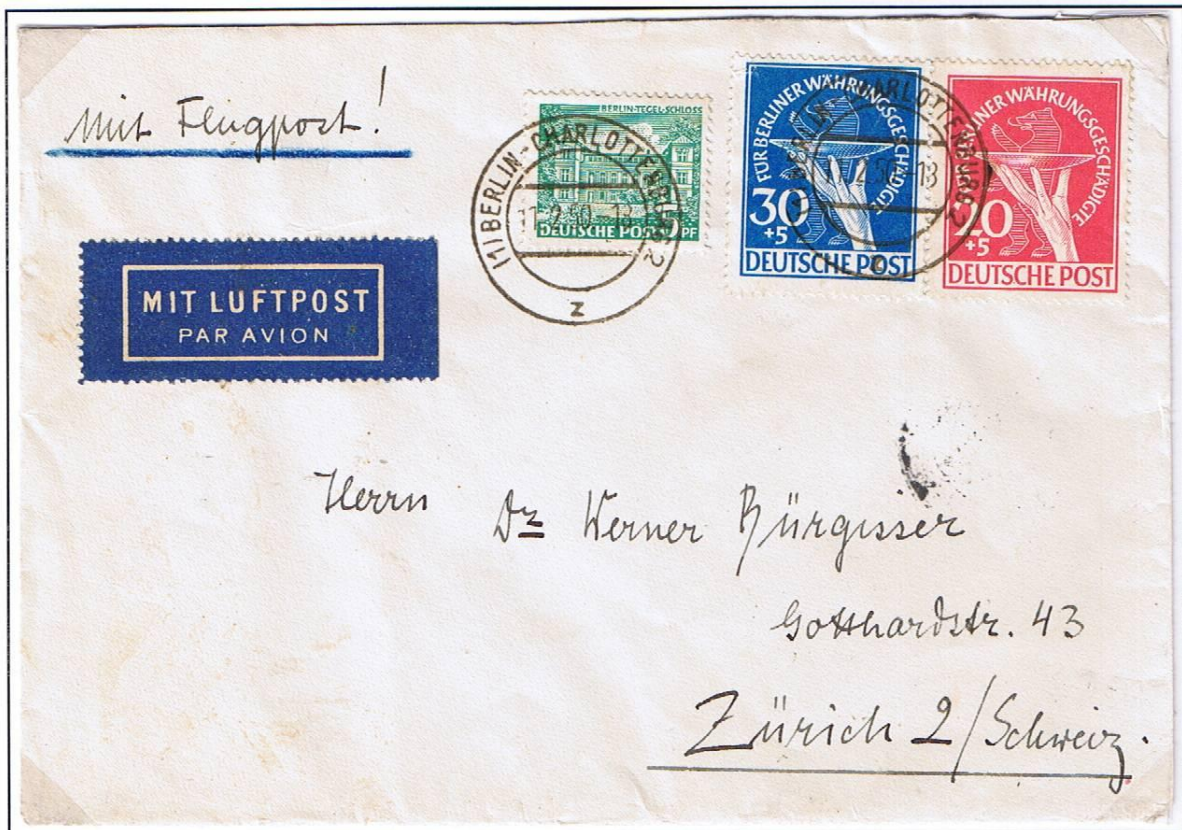 Mit Flugpost!
MIT LUFTPOST
PAR AVION
BERLIN-TEGEL-SCHLOSS
DEUTSCHE POST PF
(1) BERLIN-CHARLOTTENBURG 2
2.50.-13
z
FÜR BERLINER WÄHRUNGSGESCHÄDIGTE
30
+5
DEUTSCHE POST
BERLINER WÄHRUNGSGESCHÄDIGTE
20
+5
DEUTSCHE POST
CHARLOTTENBURG 2
2.50.-13
Herrn Dr Werner Bürgisser
Gotthardstr. 43
Zürich 2/Schweiz.